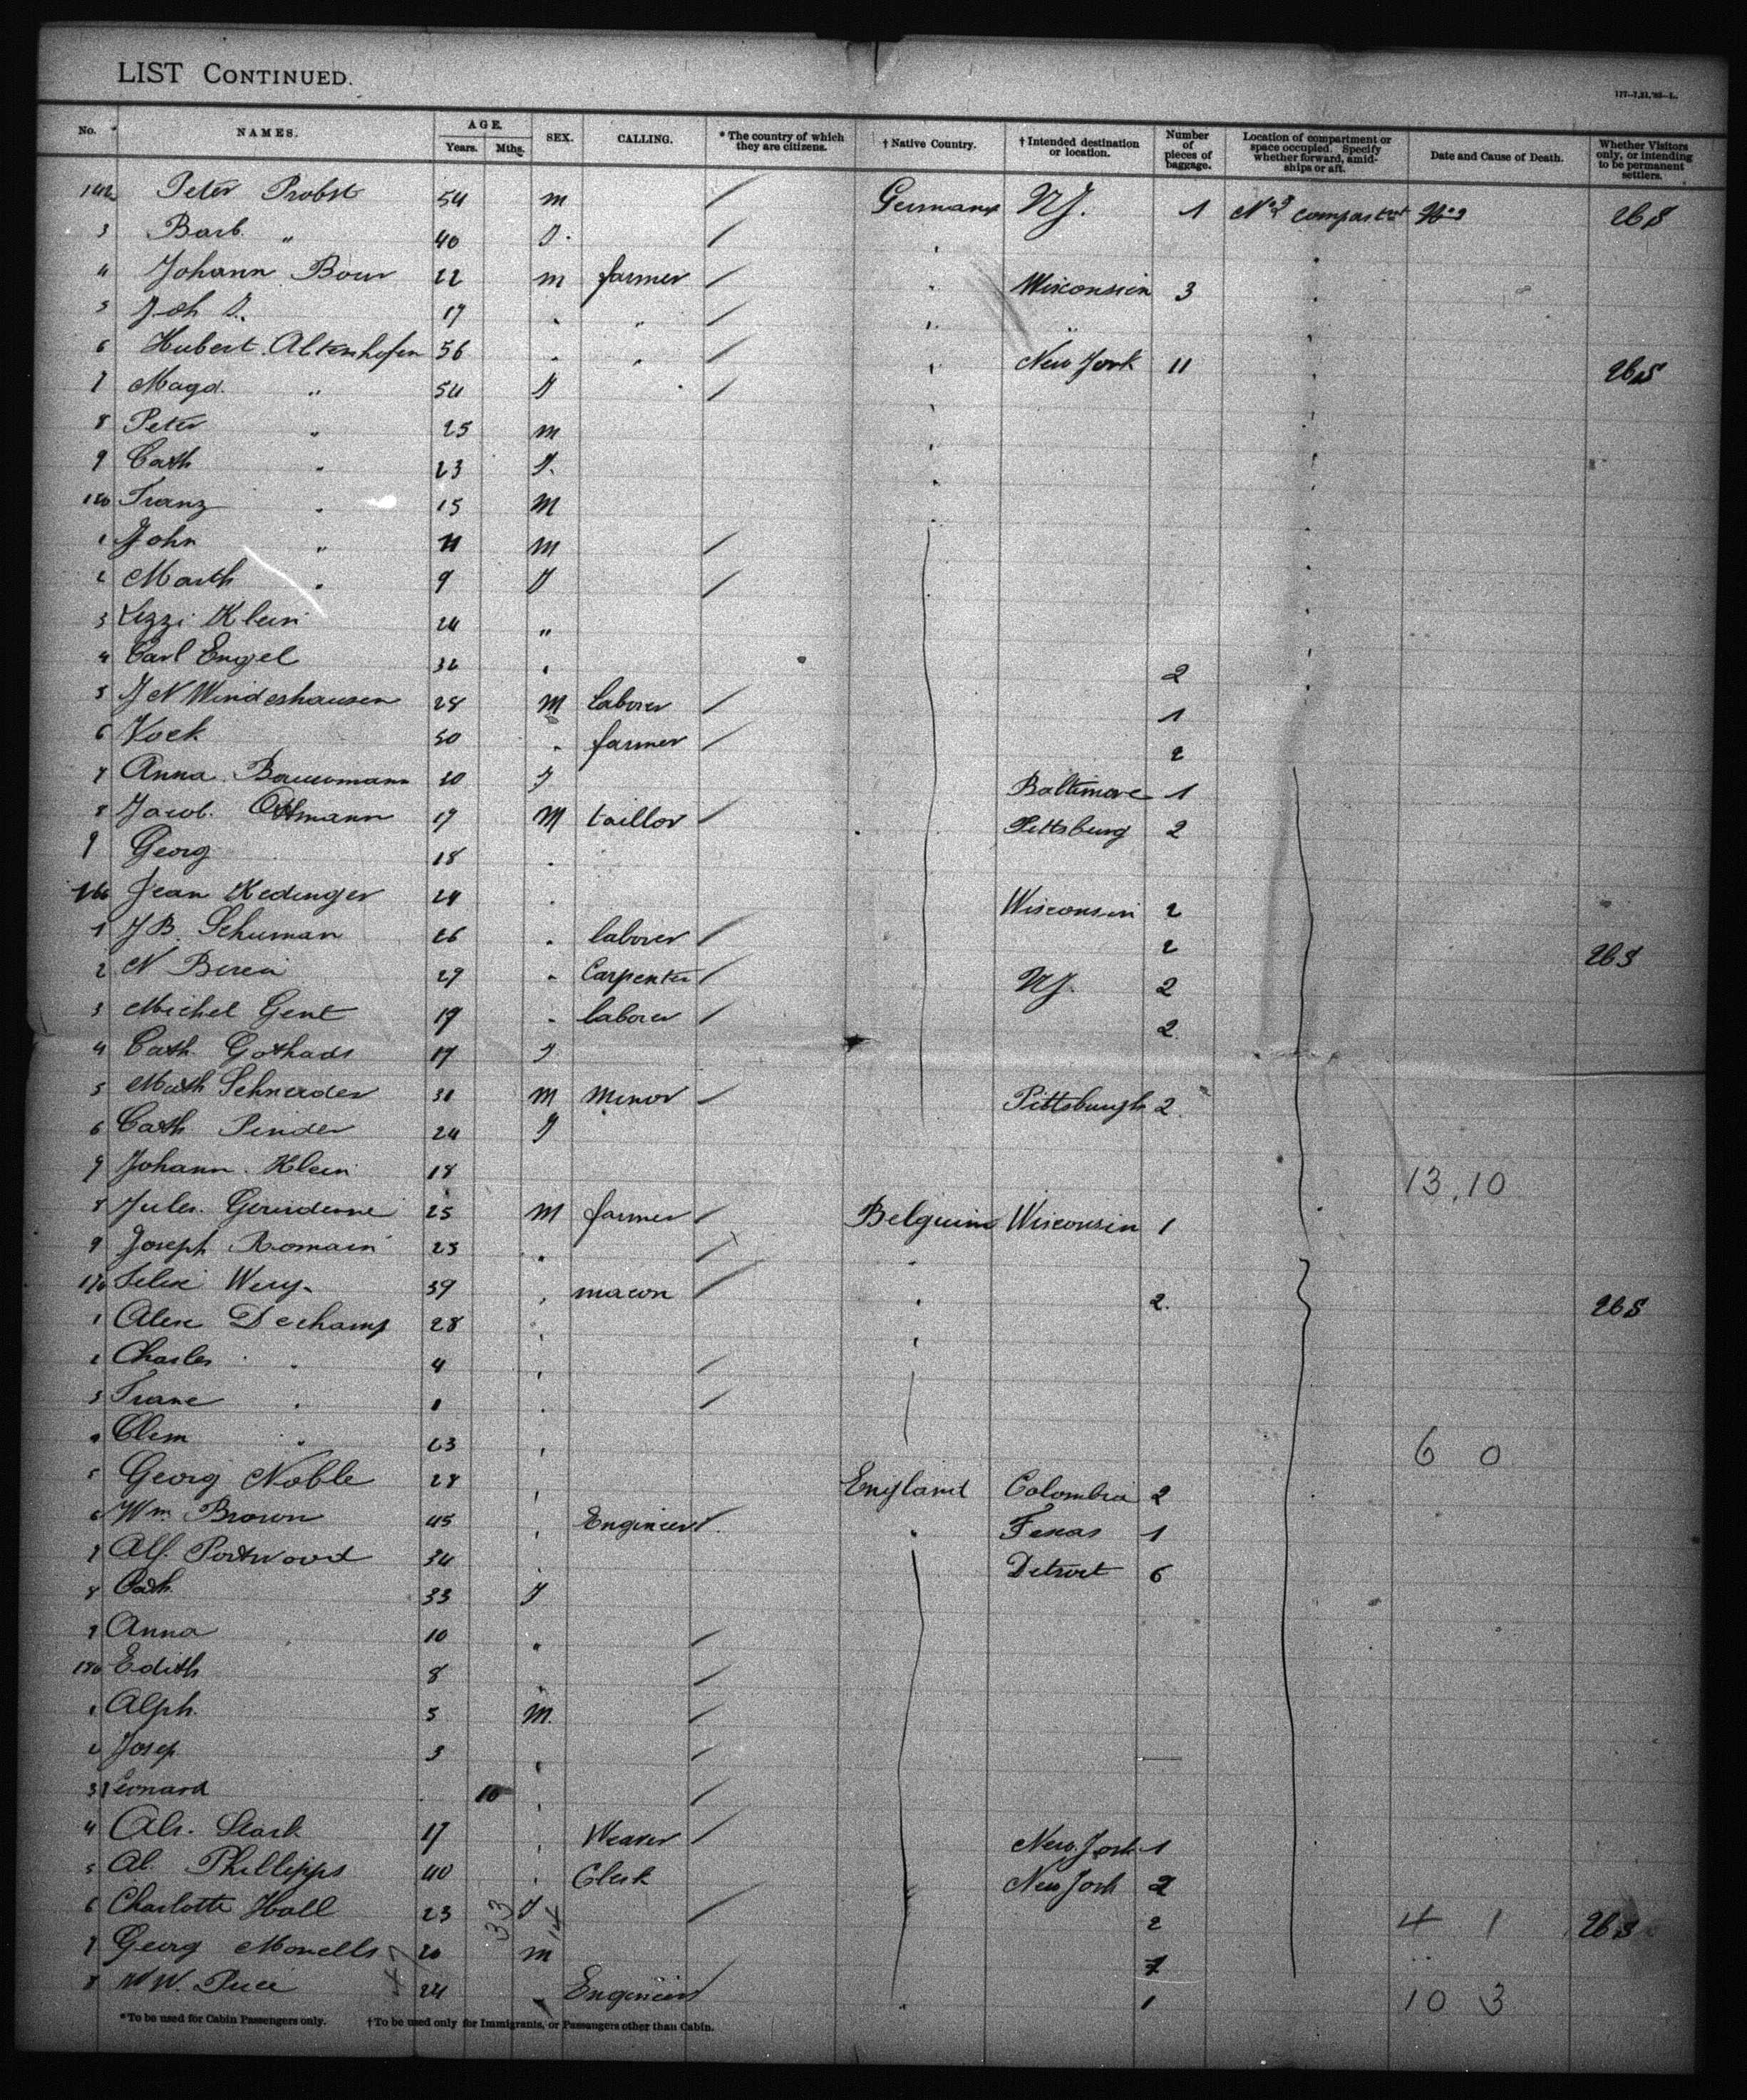 LIST CONTINUED.
117—7,21,'93—L.
No. NAMES. AGE. Years. Mths. SEX. CALLING. * The country of which they are citizens. † Native Country. † Intended destination or location. Number of pieces of baggage. Location of compartment or space occupied. Specify whether forward, amidships or aft. Date and Cause of Death. Whether Visitors only, or intending to be permanent settlers.
142 Peter Probst 54 m / Germany NJ. 1 No 3 compartmt
3 Barb. " 40 f. /
4 Johann Bour 22 m farmer / Wisconsin 3
5 Joh 17 " /
6 Hubert Altenhofen 56 " / New York 11
7 Magd. " 54 f /
8 Peter " 25 m
9 Cath " 23 f.
150 Franz " 15 M
1 John " 11 m /
2 Marth " 9 f /
3 Lizzi Klein 24 "
4 Carl Engel 32 2
5 J N Windeshausen 28 M laborer / 1
6 Kock 50 farmer / 2
7 Anna Bauermann 20 f Baltimore 1
8 Jacob Ottmann 17 M taillor / Pittsburg 2
9 Georg 18
160 Jean Kedinger 24 Wisconsin 2
1 J B Schuman 26 laborer / 2
2 N 29 Carpenter / NJ. 2
3 Michel Gent 19 laborer / 2
4 Cath. Gothads 17 f
5 Math Schneider 31 M Minor / Pittsburgh 2
6 Cath Pinder 24 f
7 Johann Klein 18 13.10
8 Jules 25 M farmer / Belguim Wisconsin 1
9 Joseph Romain 23 /
170 Felix Wery 39 macon / 2
1 Alex Dechamp 28
2 Charles " 4 /
3 Franc " 1 /
4 Clem " 23 6 0
5 Georg Noble 28 England Colombia 2
6 Wm Brown 45 Engineer / Texas 1
7 Alf. Portwood 34 Detroit 6
8 Cath. 33 f
9 Anna 10 /
180 Edith 8 /
1 Alph. 5 M. /
2 Josep 3 /
3 Leonard 10 /
4 Alr. Stark 17 Weaver / New York 1
5 Al. Phillipps 40 Clerk New York 2
6 Charlotte Hall 23 f / 2 4 1
7 Georg Monells 20 m
8 W W. Price 24 Engineer / 1 10 3
*To be used for Cabin Passengers only. †To be used only for Immigrants, or Passengers other than Cabin.